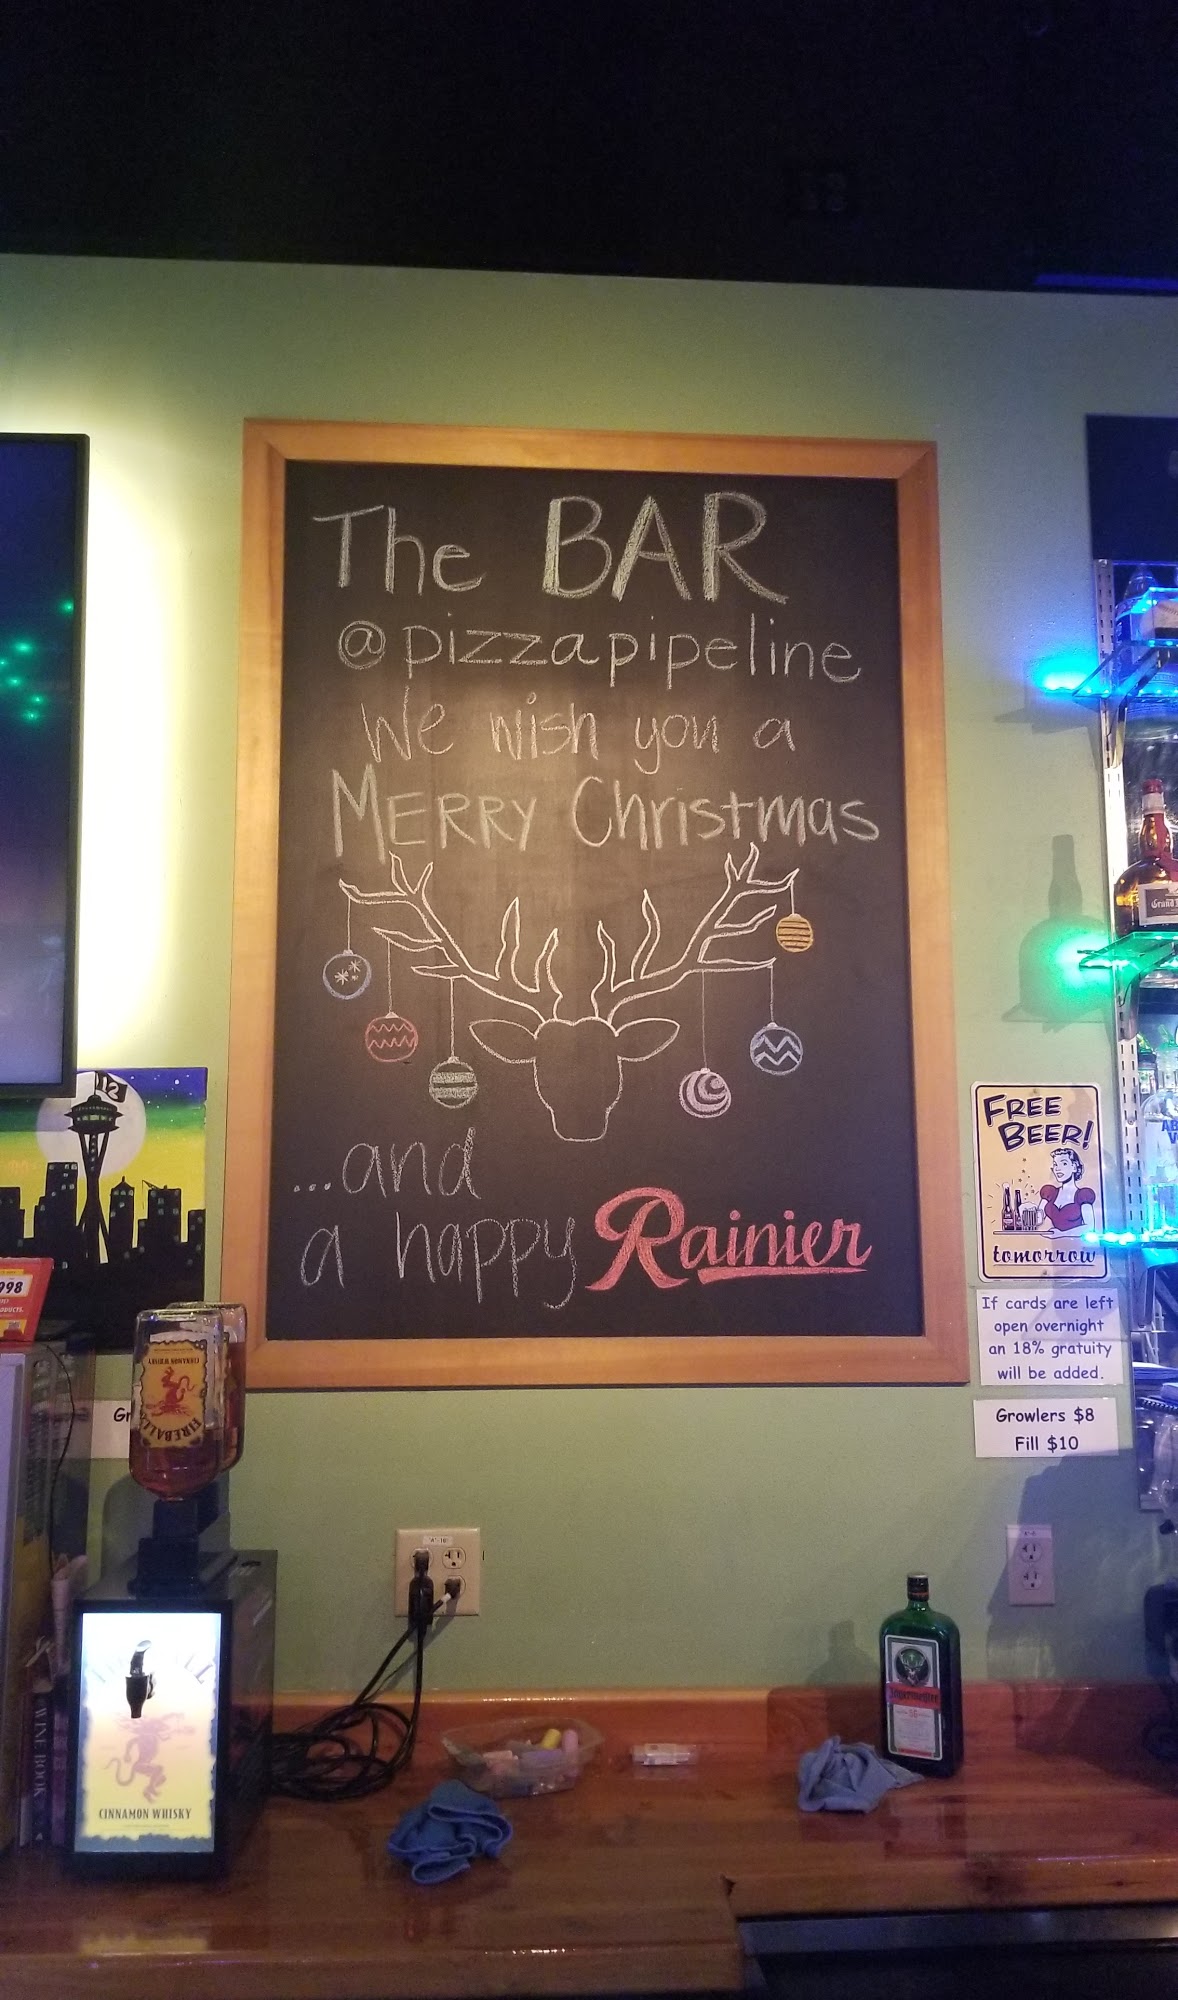 The BAR
@pizzapipeline
We wish you a
MERRY Christmas
...and
a happy Rainier
12
998
FIREBALL
CINNAMON WHISKY
CINNAMON WHISKY
WINE BOOK
"A"-16
FREE
BEER!
tomorrow
If cards are left
open overnight
an 18% gratuity
will be added.
Growlers $8
Fill $10
Jägermeister
Grand